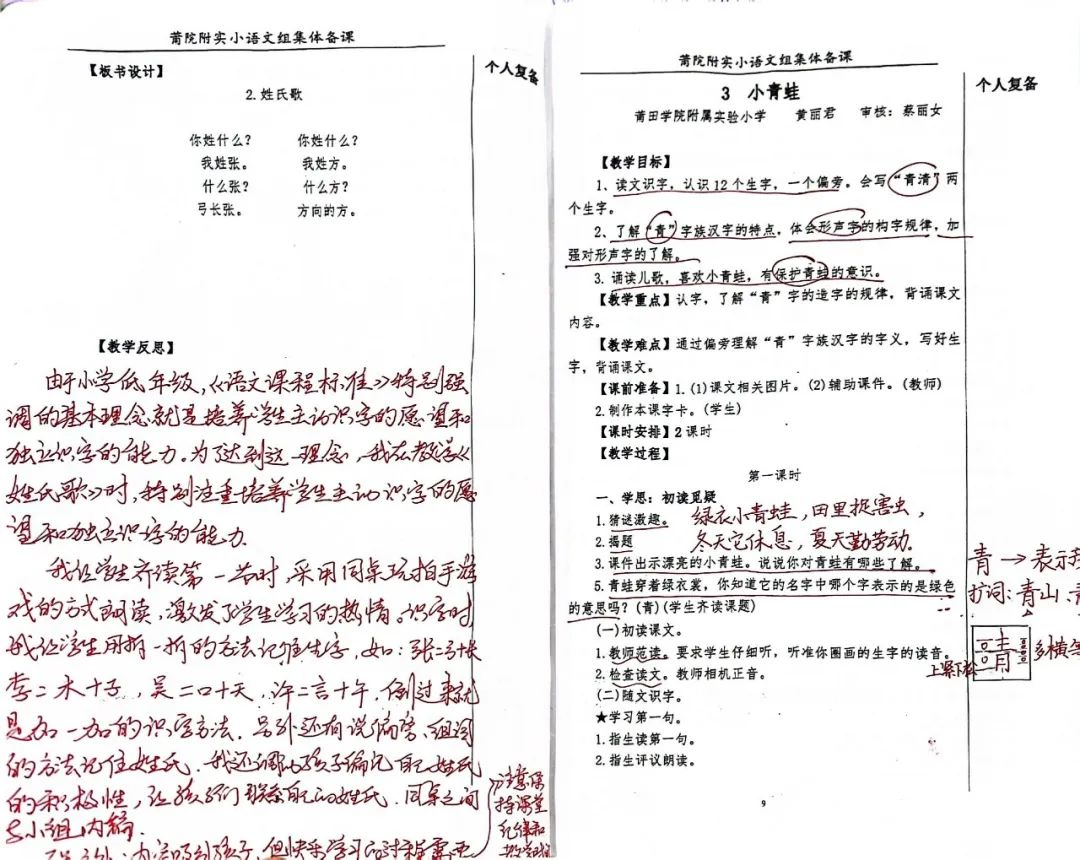 莆院附实小语文组集体备课
【板书设计】
个人复备
2.姓氏歌
你姓什么? 你姓什么?
我姓张。 我姓方。
什么张? 什么方?
弓长张。 方向的方。
【教学反思】
由于小学低年级,《语文课程标准》特别强
调的基本理念就是培养学生主动识字的愿望和
独立识字的能力。为了达到这一理念,我在教学《
姓氏歌》时,特别注重培养学生主动识字的愿
望和独立识字的能力.
我让学生齐读第一节时,采用同桌玩拍手游
戏的方式朗读,激发了学生学习的热情。识字时
我让学生用拆一拆的方法记住生字,如:张=弓+长
李=木+子,吴=口+天,许=言+午,倒过来就
是加一加的识字方法.另外还有说偏旁、组词
的方法记住姓氏.我还调动孩子编儿自己姓氏
的积极性,让孩子们联系自己的姓氏.同桌之间
与小组内编.
注意保
持课堂
纪律和
莆院附实小语文组集体备课
个人复备
3 小青蛙
莆田学院附属实验小学 黄丽君 审核:蔡丽女
【教学目标】
1、读文识字,认识12个生字,一个偏旁。会写“青清”两
个生字。
2、了解“青”字族汉字的特点,体会形声字的构字规律,加
强对形声字的了解。
3. 诵读儿歌,喜欢小青蛙,有保护青蛙的意识。
【教学重点】认字,了解“青”字的造字的规律,背诵课文
内容。
【教学难点】通过偏旁理解“青”字族汉字的字义,写好生
字,背诵课文。
【课前准备】1.(1)课文相关图片。(2)辅助课件。(教师)
2.制作本课字卡。(学生)
【课时安排】2课时
【教学过程】
第一课时
一、学思:初读见疑
1.猜谜激趣。 绿衣小青蛙,田里捉害虫,
2.揭题 冬天它休息,夏天勤劳动.
3.课件出示漂亮的小青蛙。说说你对青蛙有哪些了解。
5.青蛙穿着绿衣裳,你知道它的名字中哪个字表示的是绿色
的意思吗?(青)(学生齐读课题)
(一)初读课文。
1.教师范读。要求学生仔细听,听准你圈画的生字的读音。
2.检查读文。教师相机正音。
(二)随文识字。
★学习第一句。
1.指生读第一句。
2.指生评议朗读。
青→表示
扩词:青山、
上紧下松
多横等
9